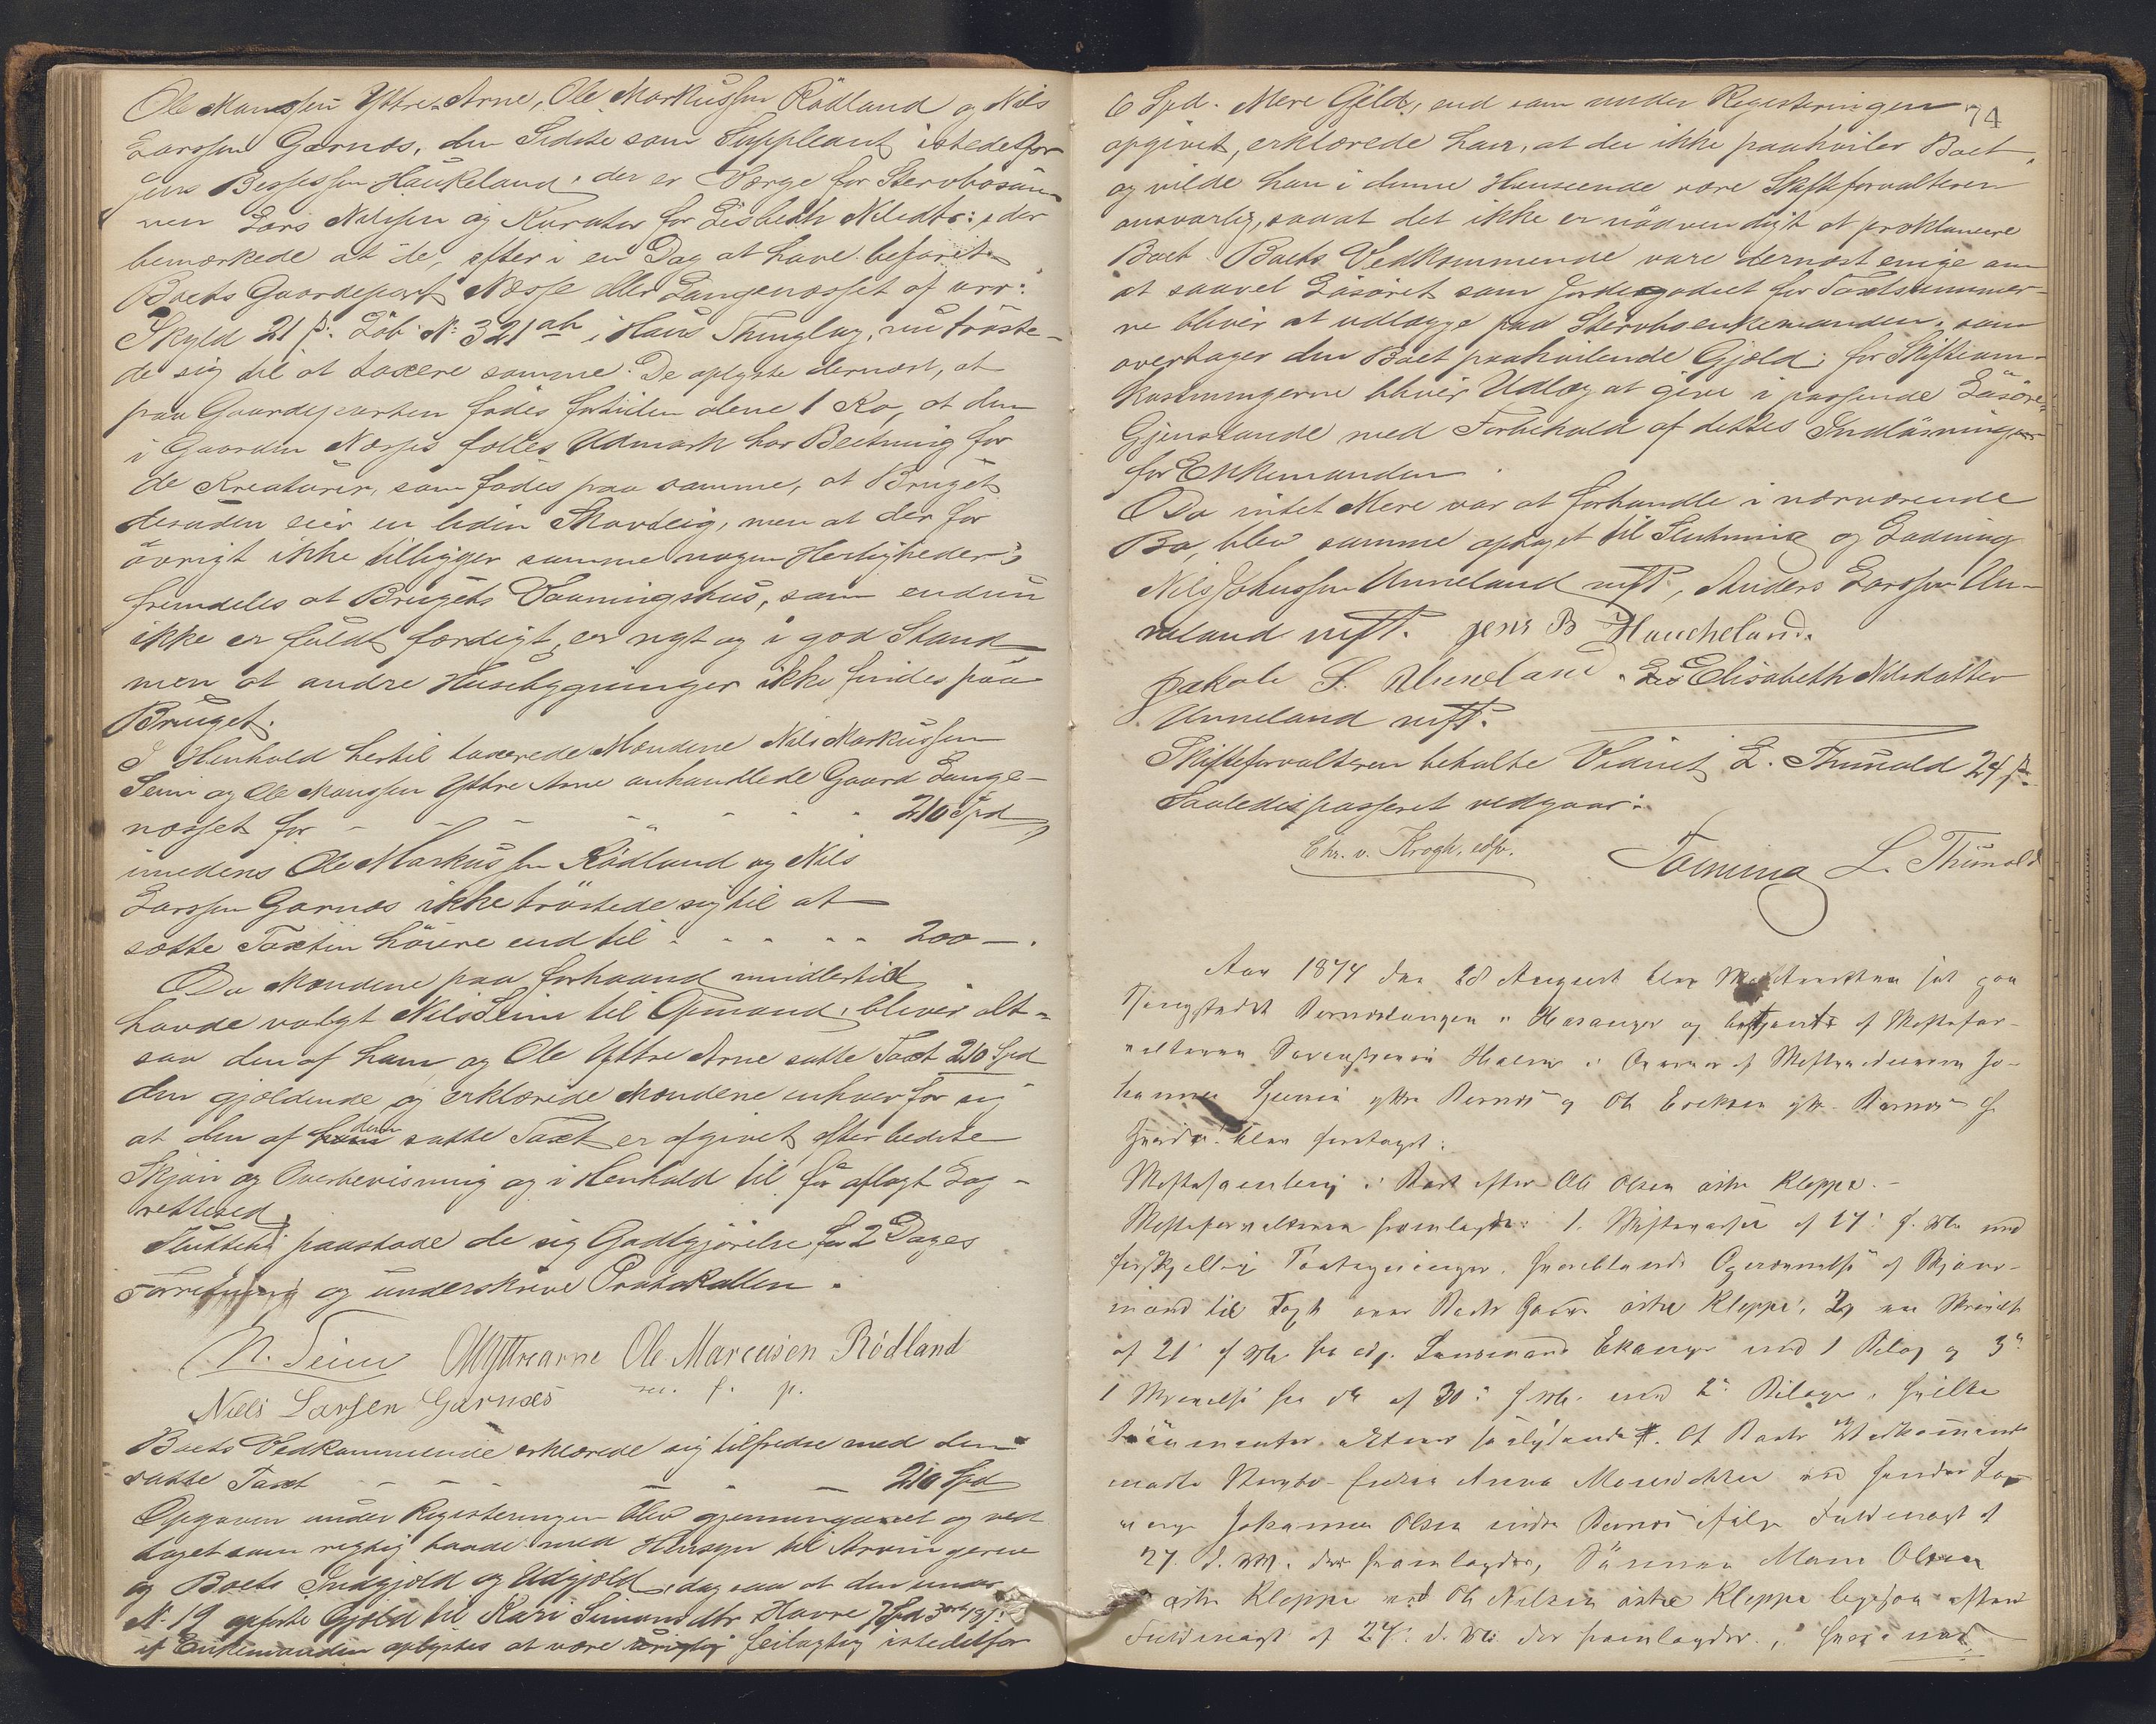 Ole Monssen Yttre Arne, Ole Markussen Rödland og Nils
Larssen Garnæs, den Sidste som Suppleant istedetfor
Jens Bessessen Haukeland, der er Værge for Stervbosön-
nen Lars Nilssen og Kurator for Lisbeth Nilsdtr: , der
bemærkede at de, efter i en Dag at have befaret
Boets Gaardepart Næsse eller Langenæsset af urev:
Skyld 21 ß. Löb: N: 321 ab i Haus Thinglag, nu tröste-
de sig til at taxere samme. De oplyste dernæst, at
paa Gaardeparten födes fortiden alene 1 Ko, at den
i Gaarden Næsses fælles Udmark har Beitning for
de Kreaturer, som födes paa samme, at Bruget
desuden eier en liden Skovteig, men at der for
övrigt ikke tilligger samme nogen Herligheder;
fremdeles at Brugets Vaaningshus, som endnu
ikke er fuldt færdigt, er nyt og i god Stand
men at andre Husebygninger ikke findes paa
Bruget.
I Henhold hertil taxerede Mændene Nils Markussen
Seim og Ole Monssen Yttre Arne anhandlede Gaard Lange-
næsset for - - - - - - 210 Spd
imedens Ole Markussen Rödland og Nils
Larssen Garnæs ikke tröstede sig til at
sætte Taxten höiere end til - - - - - 200 —.
Da Mændene paa forhaand imidlertid
havde valgt Nils Seim til Opmand, bliver alt-
saa den af ham og Ole Yttre Arne satte Taxt 210 Spd
den gjældende og erklærede Mændene enhver for sig
at den af dem satte Taxt er afgivet efter bedste
Skjön og Overbevisning og i Henhold til för aflagt Lag-
rettesed.
Sluttelig paastode de sig Godtgjörelse for 2 Dages
Forretning og underskreve Protokollen.
N. Seim OMYttrearne Ole Marcusen Rødland
m. f. p.
Niels Larsen Garnæs
Boets Vedkommende erklærede sig tilfredse med den
satte Taxt - - - - - 210 Spd
Opgaven under Registeringen blev gjennemgaaet og ved-
taget som rigtig baade med Hensyn til Arvingerne
og Boets Indgjæld og Udgjæld, dog saa at den under
N. 19 opförte Gjæld til Kari Simonsdtr Havre 7 Spd 3 ort 19 ß:
af Enkemanden oplystes at være urigtig feilagtig istedetfor
74
6 Spd. Mere Gjeld, end som under Registeringen
opgivet, erklærede han, at der ikke paahviler Boet,
og vilde han i denne Henseende være Skifteforvalteren
ansvarlig, saaat det ikke er nödvendigt at proklamere
Boet. Boets Vedkommende vare dernæst enige om
at saavel Lösöret som Jordegodset for Taxtsummer-
ne bliver at udlægge paa Stervboenkemanden, som
overtager den Boet paahvilende Gjæld; for Skifteom-
kostningerne bliver Udlæg at give i passende Lösöre-
Gjenstande med Forbehold af dettes Indlösning
for Enkemanden.
Da intet Mere var at forhandle i nærværende
Bo, blev samme optaget til Slutning og Lodning
Nils Johnssen Unneland mfP., Anders Larssen Un-
neland mfP. Jens B Haucheland.
Jakob S. Unneland. Elisabeth Nilsdatter
Unneland mfP.
Skifteforvalteren betalte Vidnet L. Thunold 24 ß.
Saaledes passeret vedgaar:
Chr. v. Krogh, edsv. L. Thunold
Aar 1874 den 28 August blev Skifteretten sat paa
Thingstedet i Hosanger og betjent af Skiftefor-
valteren Sorenskriver i Overvær af Skiftevidnerne Jo-
hannes yttre og Ole Eriksen yttre
Hvorda blev foretaget:
Skiftesamling i Boet efter Ole Olsen östre Kleppe.-
Skifteforvalteren fremlagde: 1. af 17: f. M. med
forskjellig Paategninger, hvoriblandt Opnævnelse af Skjöns-
mænd til Taxt over Boets Gaard östre Kleppe, 2, en Skrivelse
af 21: f. M. fra Lensmand Ekanger med 1 Bilag og 3:
1 Skrivelse fra do af 30: f. M. med 2: Bilage, hvilke
Documenter saalydende. Af Boets Vedkommende
mödte Stervbo-Enken Anna Monsdatter med hendes Lav-
værge Johannes Olsen indre ifölge Fuldmagt af
27. d. M. der fremlagdes, Sönnen Mons Olsen
östre Kleppe ved Ole Nilsen östre Kleppe ligesaa efter
Fuldmagt af 27. d. M. der fremlagdes,